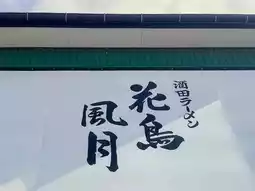 酒田ラーメン
花鳥
風月